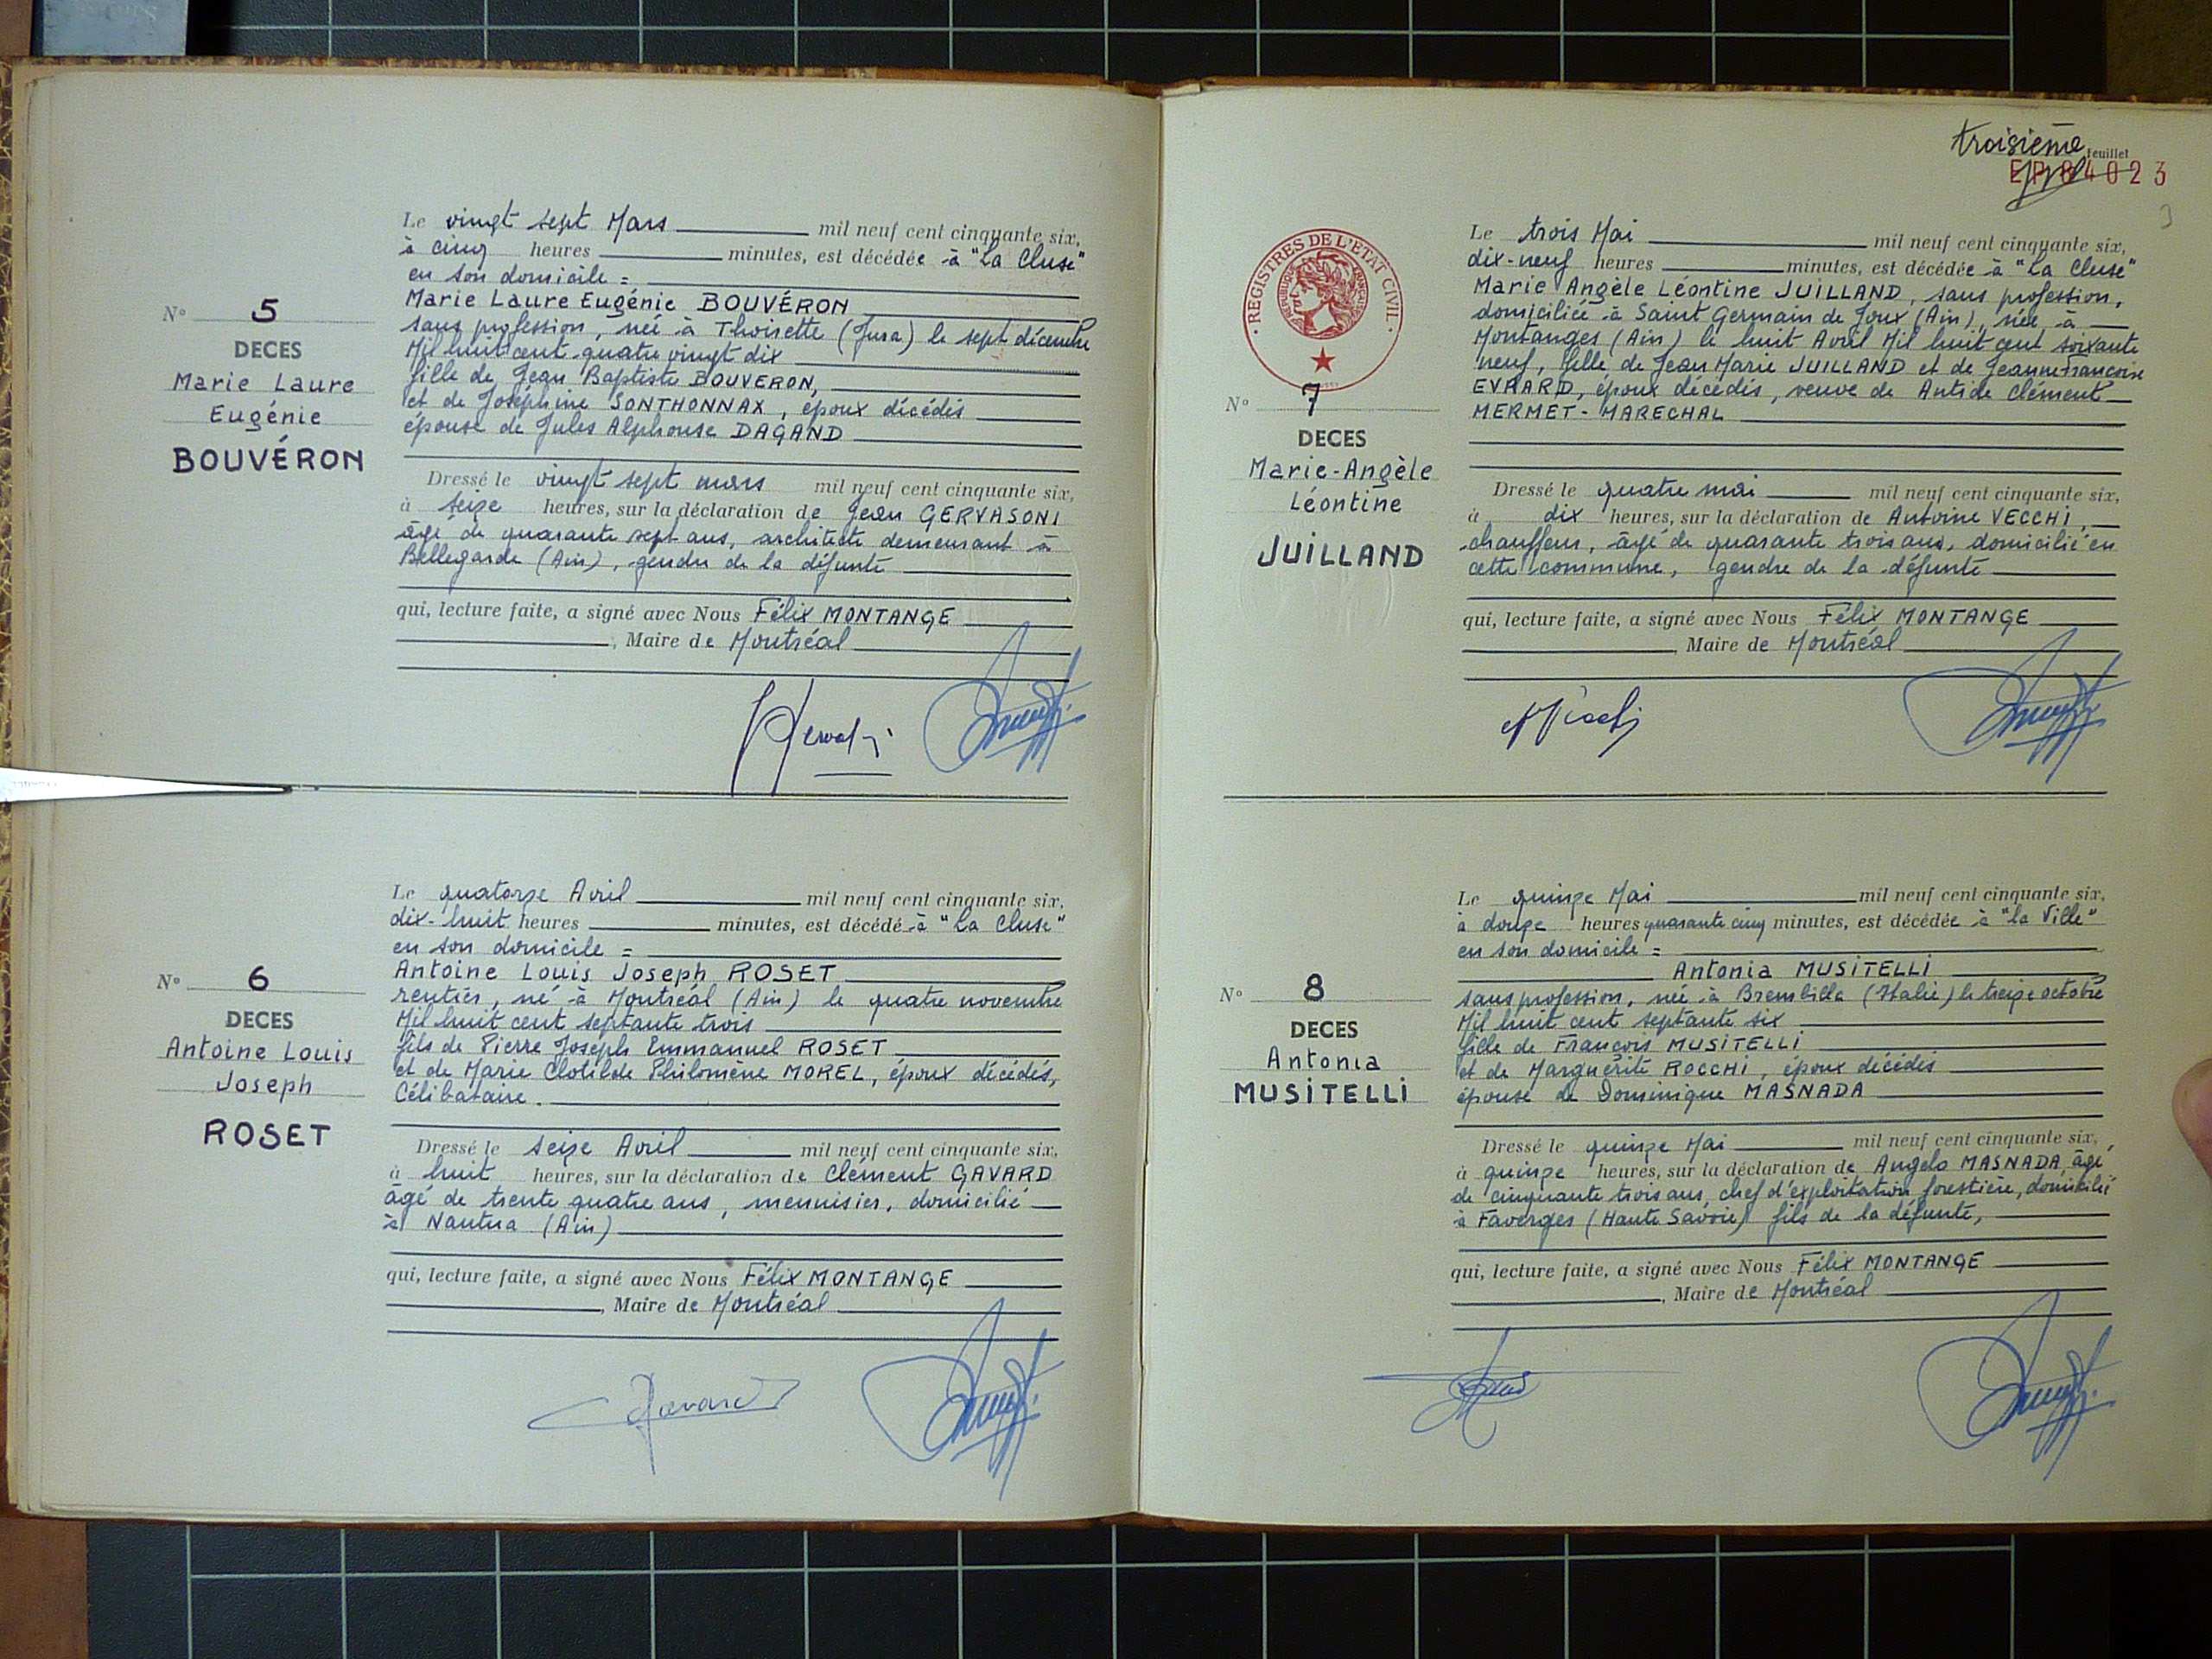 Le vingt sept Mars mil neuf cent cinquante six,
à cinq heures minutes, est décédée à "La Cluse"
en son domicile =
Marie Laure Eugénie BOUVÉRON
sans profession, née à Thoirette (Jura) le sept décembre
Mil huit cent quatre vingt dix
fille de Jean Baptiste BOUVERON,
et de Joséphine SONTHONNAX, époux décédés
épouse de Jules Alphonse DAGAND
N° 5
DECES
Marie Laure
Eugénie
BOUVÉRON
Dressé le vingt sept mars mil neuf cent cinquante six,
à seize heures, sur la déclaration de Jean GERVASONI
âgé de quarante sept ans, architecte demeurant à
Bellegarde (Ain), gendre de la défunte
qui, lecture faite, a signé avec Nous Félix MONTANGE
, Maire de Montréal
Le quatorze Avril mil neuf cent cinquante six,
dix-huit heures minutes, est décédé à "La Cluse"
en son domicile =
Antoine Louis Joseph ROSET
rentier, né à Montréal (Ain) le quatre novembre
Mil huit cent septante trois
fils de Pierre Joseph Emmanuel ROSET
et de Marie Clotilde Philomène MOREL, époux décédés,
Célibataire.
N° 6
DECES
Antoine Louis
Joseph
ROSET
Dressé le seize Avril mil neuf cent cinquante six,
à huit heures, sur la déclaration de Clément GAVARD
âgé de trente quatre ans, menuisier, domicilié
à Nantua (Ain)
qui, lecture faite, a signé avec Nous Félix MONTANGE
, Maire de Montréal
Gavard
troisième feuillet
EP 84023
3
REGISTRES DE L'ETAT CIVIL
Le trois Mai mil neuf cent cinquante six,
dix-neuf heures minutes, est décédée à "La Cluse"
Marie Angèle Léontine JUILLAND, sans profession,
domiciliée à Saint Germain de Joux (Ain), née à
Montanges (Ain) le huit Avril Mil huit cent soixante
neuf, fille de Jean Marie JUILLAND et de Jeanne Françoise
EVRARD, époux décédés, veuve de Antide Clément
MERMET-MARECHAL
N° 7
DECES
Marie-Angèle
Léontine
JUILLAND
Dressé le quatre mai mil neuf cent cinquante six,
à dix heures, sur la déclaration de Antoine VECCHI,
chauffeur, âgé de quarante trois ans, domicilié en
cette commune, gendre de la défunte
qui, lecture faite, a signé avec Nous Félix MONTANGE
, Maire de Montréal
Le quinze Mai mil neuf cent cinquante six,
à douze heures quarante cinq minutes, est décédée à "la Ville"
en son domicile =
Antonia MUSITELLI
sans profession, née à Brembilla (Italie) le treize octobre
Mil huit cent septante six
fille de François MUSITELLI
et de Marguérite ROCCHI, époux décédés
épouse de Dominique MASNADA
N° 8
DECES
Antonia
MUSITELLI
Dressé le quinze Mai mil neuf cent cinquante six,
à quinze heures, sur la déclaration de Angelo MASNADA, âgé
de cinquante trois ans, chef d'exploitation forestière, domicilié
à Faverges (Haute Savoie) fils de la défunte,
qui, lecture faite, a signé avec Nous Félix MONTANGE
, Maire de Montréal